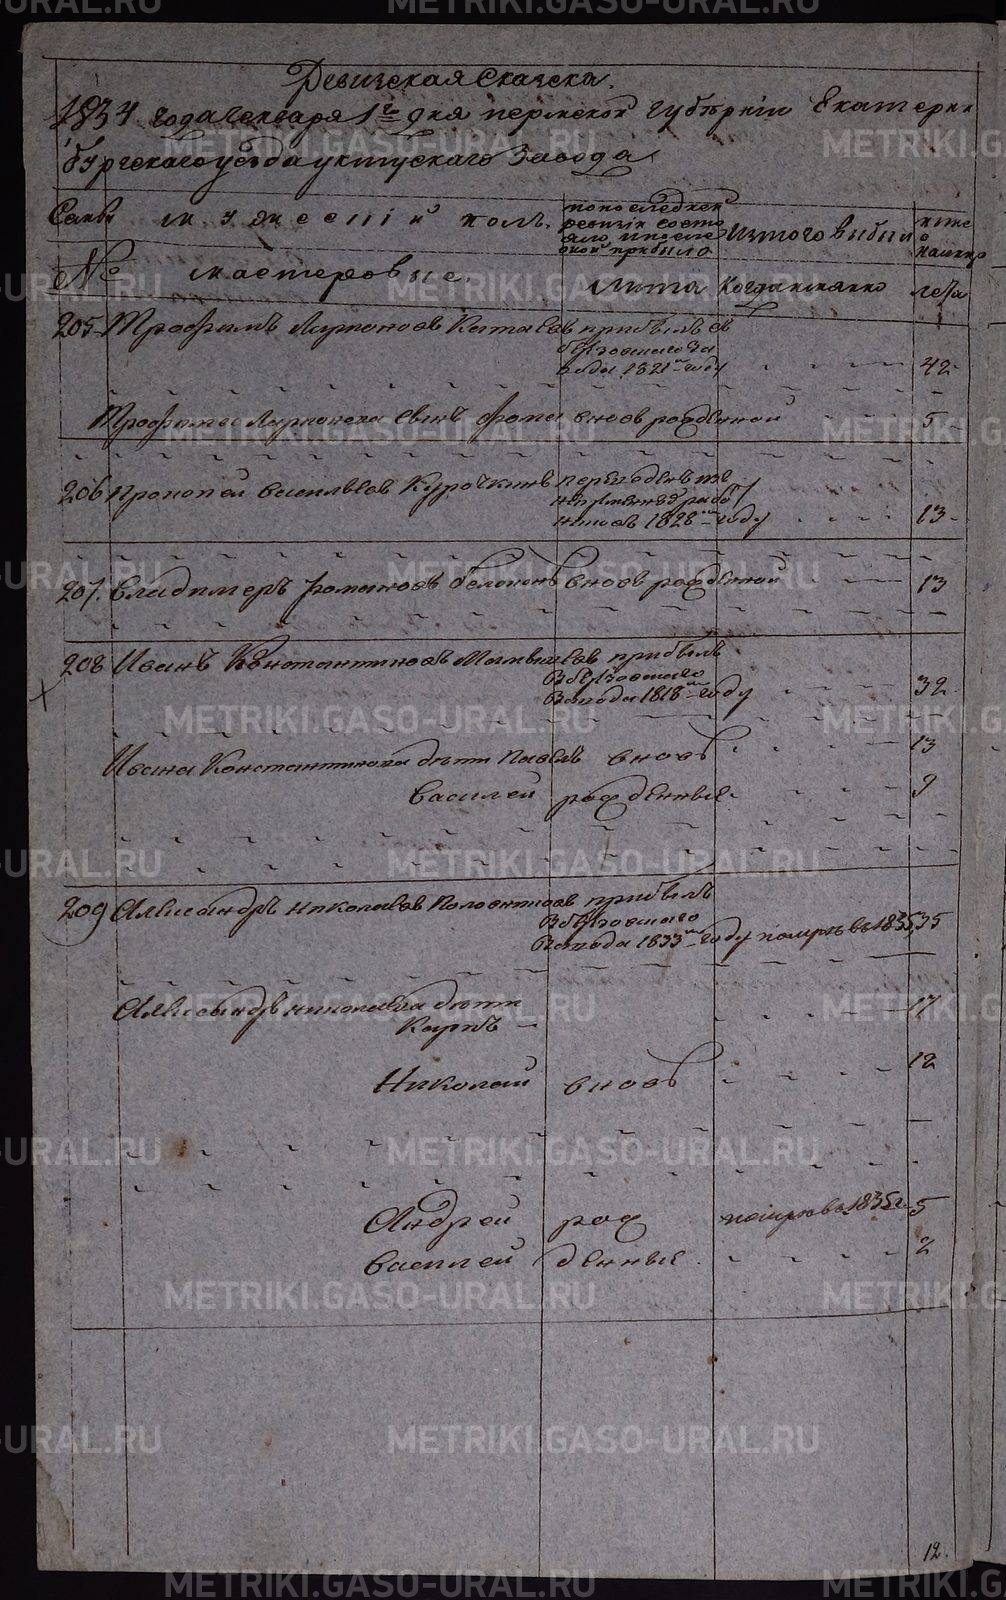 Ревизская Сказска.
1834 года Генваря 1го дня пермской губернии Екатерин
бургскаго уезда уктускаго Завода
Семьи мужеский полъ. попоследней ревизии состояло ипосле оной прибыло Изтого выбыло ныне в налице
№ мастеровые. лета Когда имянно лета
205 Трофимъ Ларионовъ Катаевъ прибылъ съ
берзовскаго За
вода 1821го году 42
Трофима Ларионова сынъ Фома вновь рожденной 5
206 Прокопей Васильевъ Курочкинъ переведенъ
1828го году 13
207. Владимеръ Романовъ вновь рожденной 13
208 Иванъ Константиновъ прибылъ
Зберзовскаго
Завода 1818го году 32
Ивана Константинова дети Павелъ вновь 13
Василей рожденные. 9
209 Александръ Николаевъ прибылъ
Зберзовскаго
Завода 1833го году помръ въ 1835 35
Александра Николаева дети
Карпъ 17
Николай вновь 12
Андрей рож помръ въ 1835г. 5
Василей денные. 2
12.
METRIKI.GASO-URAL.RU